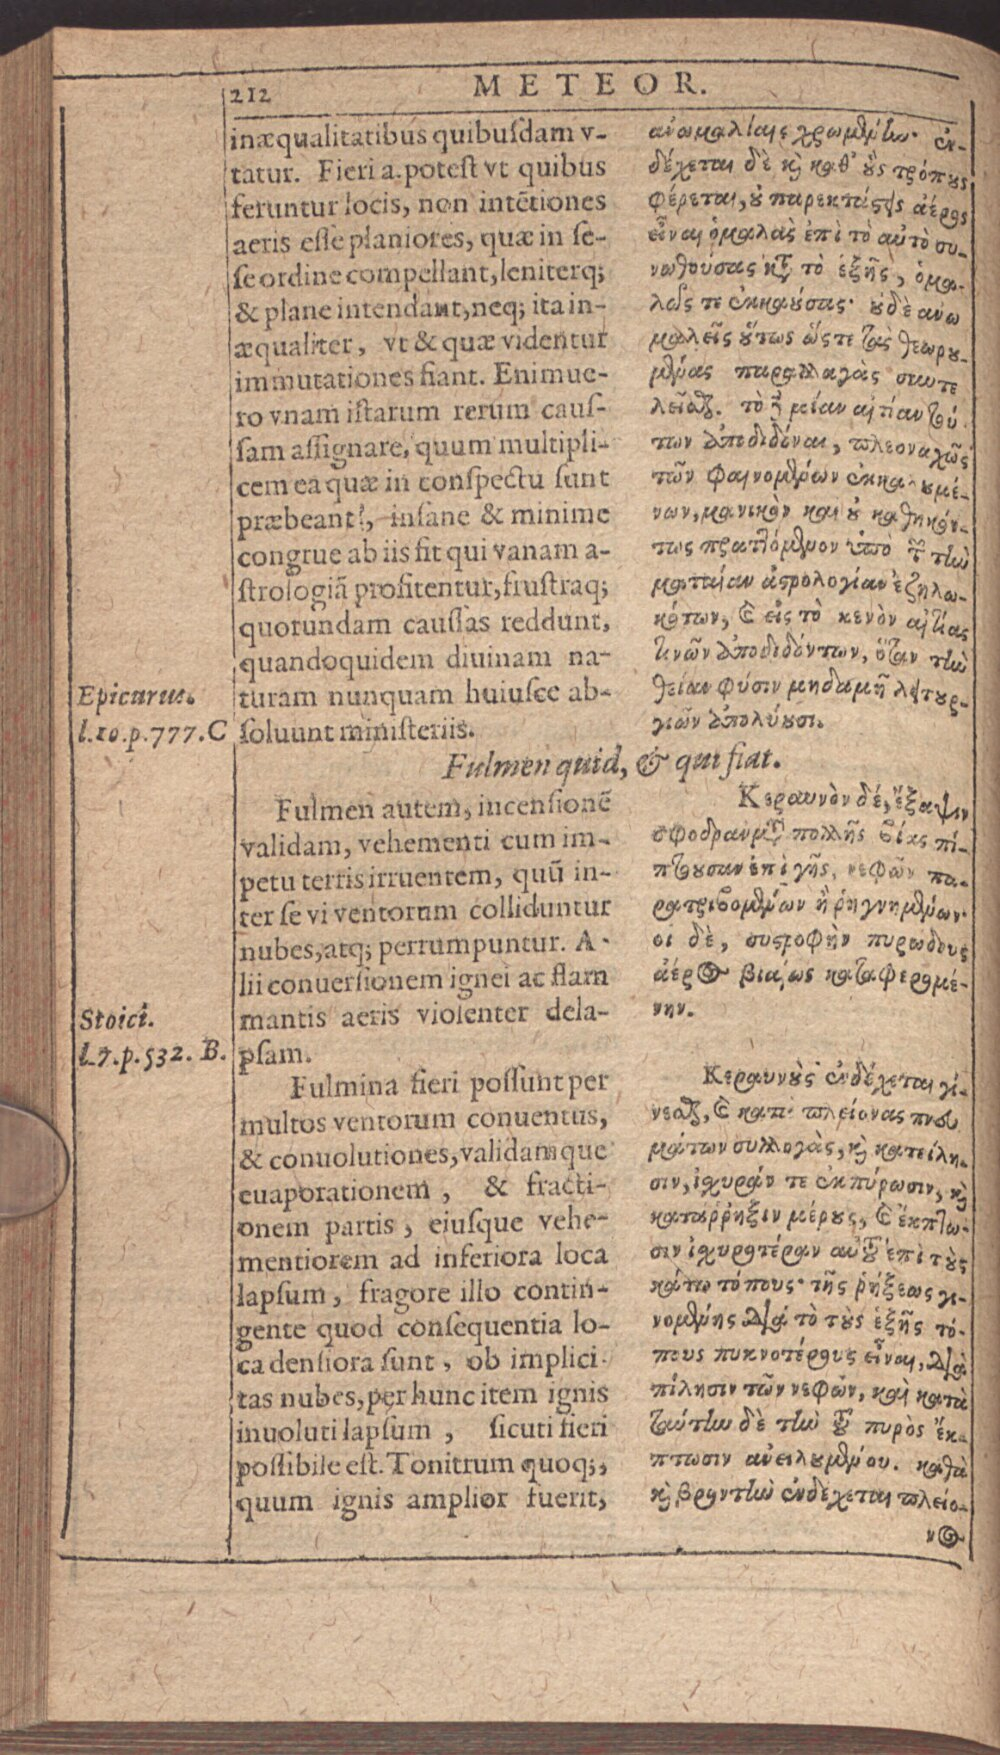 212
METEOR.
inæqualitatibus quibuſdam v-
tatur. Fieri a. poteſt vt quibus
feruntur locis, non intẽtiones
aeris eſſe planiores, quæ in ſe-
ſe ordine compellant, leniterq;
& plane intendant, neq; ita in-
æqualiter, vt & quæ videntur
immutationes fiant. Enimue-
ro vnam iſtarum rerum cauſ-
ſam aſſignare, quum multipli-
cem ea quæ in conſpectu ſunt
præbeant, inſane & minime
congrue ab iis fit qui vanam a-
ſtrologiã profitentur, fruſtraq;
quorundam cauſſas reddunt,
quandoquidem diuinam na-
turam nunquam huiuſce ab-
ſoluunt miniſteriis.
ἀνωμαλίαις χρωμένην· ἐν-
δέχεται δὲ καὶ καθ' οὓς τρόπους
φέρεται, οὐ παρεκτάσεις ἀέρος
εἶναι ὁμαλὰς ἐπὶ τὸ αὐτὸ συ-
νωθούσας κατὰ τὸ ἑξῆς, ὁμα-
λῶς τε ἐκκαούσας· οὐδὲ ἀνω
μαλεῖς οὕτως ὥστε τὰς θεωρου-
μένας παραλλαγὰς συντε
λεῖσθαι. τὸ δὲ μίαν αἰτίαν τού-
των ἀποδιδόναι, πλεοναχῶς
τῶν φαινομένων ἐκκαλουμέ-
νων, μανικὸν καὶ οὐ καθηκόν-
τως πραττόμενον ὑπὸ τῶν τὴν
ματαίαν ἀστρολογίαν ἐζηλω-
κότων, καὶ εἰς τὸ κενὸν αἰτίας
τινῶν ἀποδιδόντων, ὅταν τὴν
θείαν φύσιν μηδαμῆ λειτουρ-
γιῶν ἀπολύουσι.
Epicurus.
l.10.p.777.C
Fulmen quid, & qui fiat.
Fulmen autem, incenſionẽ
validam, vehementi cum im-
petu terris irruentem, quũ in-
ter ſe vi ventorum colliduntur
nubes, atq; perrumpuntur. A-
lii conuerſionem ignei ac flam
mantis aeris violenter dela-
pſam.
Κεραυνὸν δέ, ἔξαψιν
σφοδρὰν μετὰ πολλῆς βίας πί-
πτουσαν ἐπὶ γῆς, νεφῶν πα-
ρατριβομένων ἢ ῥηγνυμένων·
οἱ δὲ, συστροφὴν πυρώδους
ἀέρος βιαίως καταφερομέ-
νην.
Stoici.
l.7.p.532. B.
Fulmina fieri poſſunt per
multos ventorum conuentus,
& conuolutiones, validamque
euaporationem, & fracti-
onem partis, eiuſque vehe-
mentiorem ad inferiora loca
lapſum, fragore illo contin-
gente quod conſequentia lo-
ca denſiora ſunt, ob implici-
tas nubes, per hunc item ignis
inuoluti lapſum, ſicuti fieri
poſſibile eſt. Tonitrum quoq;,
quum ignis amplior fuerit,
Κεραυνοὺς ἐνδέχεται γί-
νεσθαι, καὶ κατὰ πλείονας πνευ
μάτων συλλογὰς, καὶ κατείλη-
σιν, ἰσχυράν τε ἐκπύρωσιν, καὶ
κατάρρηξιν μέρους, καὶ ἔκπτω-
σιν ἰσχυροτέραν αὐτοῦ ἐπὶ τοὺς
κάτω τόπους· τῆς ῥήξεως γι-
νομένης διὰ τὸ τοὺς ἑξῆς τό-
πους πυκνοτέρους εἶναι, διὰ
πίλησιν τῶν νεφῶν, καὶ κατὰ
ταύτην δὲ τὴν τοῦ πυρὸς ἔκ-
πτωσιν ἀνειλουμένου. καθὰ
καὶ βροντὴν ἐνδέχεται πλείο-
νος